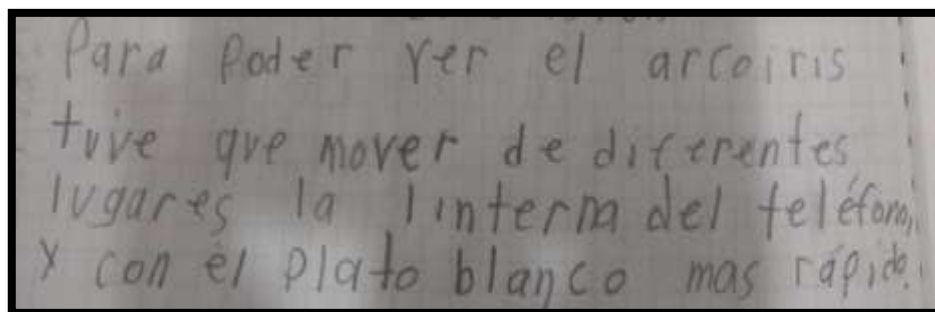 Para Poder ver el arcoiris
tuve que mover de diferentes
lugares la linterna del teléfono,
y con el plato blanco mas rápido.